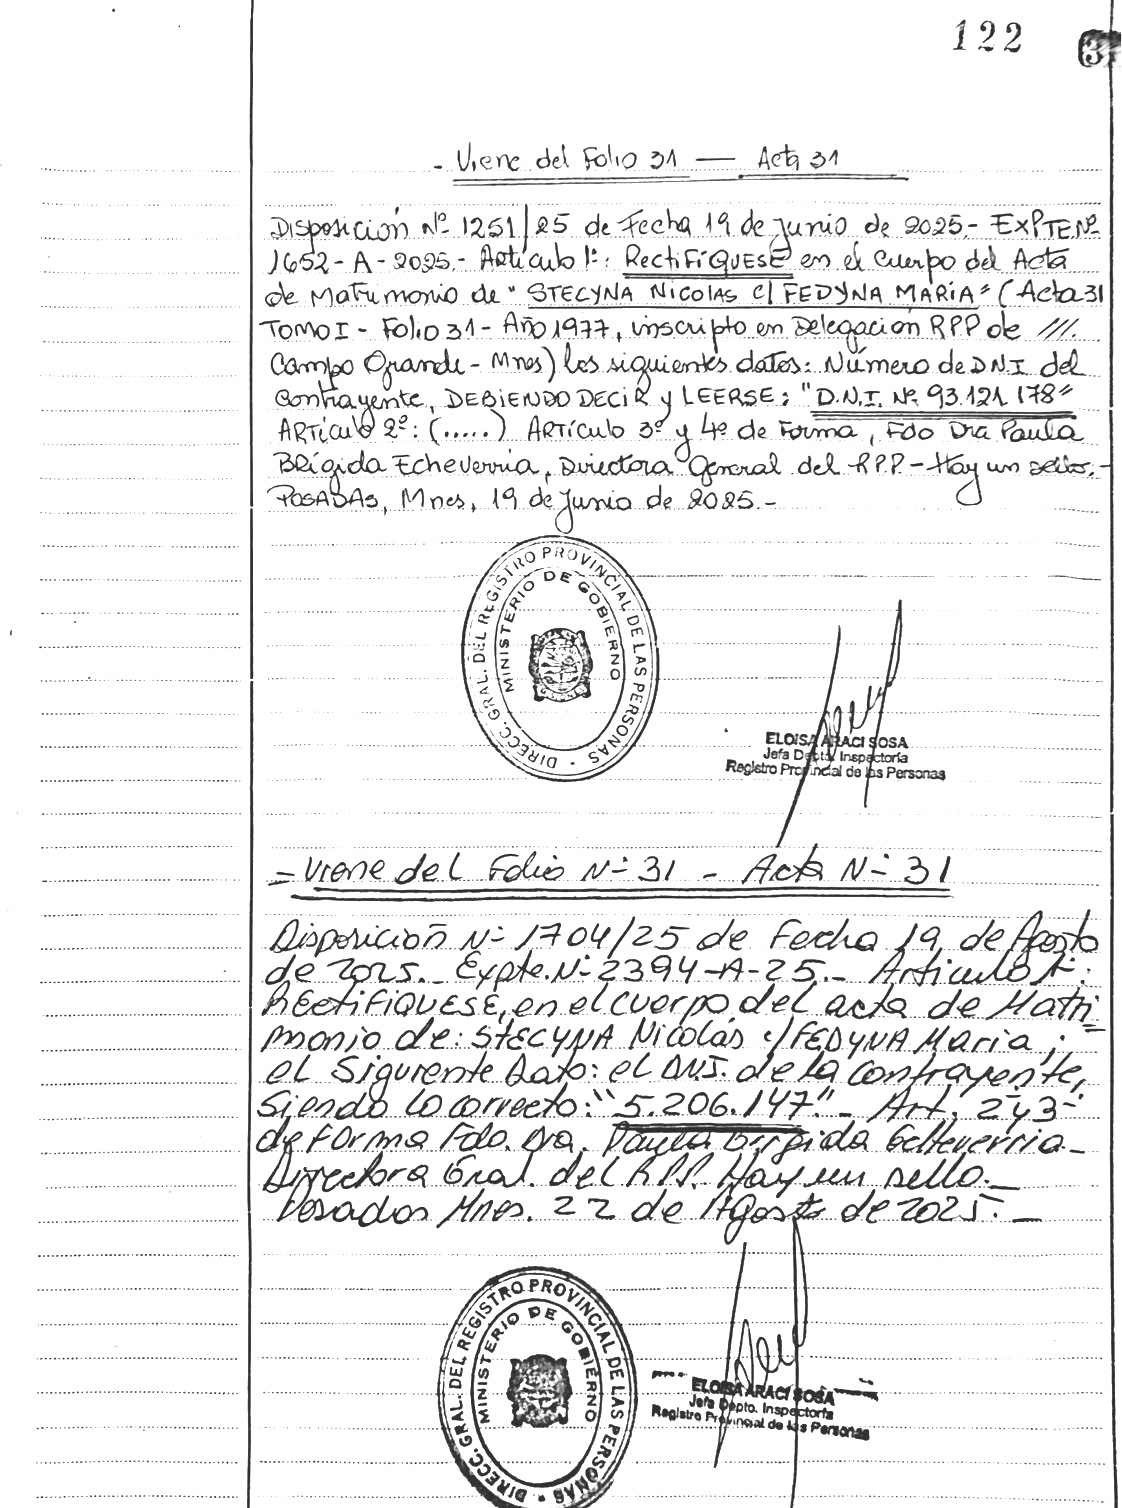 122
3
- Viene del Folio 31 — Acta 31
Disposición Nº 1251/25 de Fecha 19 de Junio de 2025.- EXPTE Nº
1652-A-2025.- Artículo 1º: RECTIFÍQUESE en el Cuerpo del Acta
de Matrimonio de "STECYNA NICOLAS C/ FEDYNA MARÍA" (Acta 31
TOMO I - Folio 31 - Año 1977, inscripto en Delegación RPP de ///.
Campo Grande - Mnes) los siguientes datos: Número de D.N.I del
Contrayente, DEBIENDO DECIR y LEERSE: "D.N.I. Nº 93.121.178"
ARTÍCULO 2º: (.....) ARTÍCULO 3º y 4º de Forma, Fdo Dra Paula
Brígida Echeverría, Directora General del R.P.P. - Hay un sello.-
POSADAS, Mnes, 19 de Junio de 2025.-
DIRECC. GRAL. DEL REGISTRO PROVINCIAL DE LAS PERSONAS
MINISTERIO DE GOBIERNO
ELOISA ARACI SOSA
Jefa Depto. Inspectoría
Registro Provincial de las Personas
= Viene del Folio Nº 31 - Acta Nº 31
Disposición Nº 1704/25 de Fecha 19 de Agosto
de 2025.- Expte. Nº 2394-A-25.- Artículo 1º:
RECTIFIQUESE, en el cuerpo del acta de Matri
monio de: STECYNA Nicolás c/ FEDYNA Maria;
el Siguiente Dato: el D.N.I. de la contrayente,
Siendo lo correcto: "5.206.147".- Art. 2º y 3º
de Forma Fdo. Dra. Paula Brigida Echeverria -
Directora Gral. del R.P.P. Hay un sello.-
Posadas Mnes. 22 de Agosto de 2025.-
DIRECC. GRAL. DEL REGISTRO PROVINCIAL DE LAS PERSONAS
MINISTERIO DE GOBIERNO
ELOISA ARACI SOSA
Jefa Depto. Inspectoría
Registro Provincial de las Personas